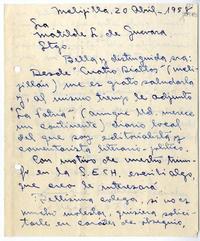 Melipilla, 20 Abril - 1958
Sra
Matilde L. de Guevara
Stgo.
Bella y distinguida sra:
Desde "Cuatro Diablos" (melipillan) me es grato saludarla
y al mismo tiempo le adjunto
"La Patria" (aunque Ud. merece
un continente) diario local
del que soy editorialista y
comentarista literario-político.
Con motivo de vuestro triunfo
en la S.E.CH. escribí algo,
que creo de interesará
Bellísima colega, si no es
mucho molestar, quisiera solicitarle
en calidad de obsequio,